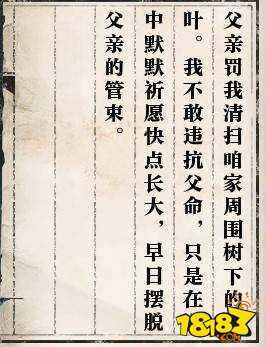 父亲罚我清扫咱家周围树下的
叶。我不敢违抗父命，只是在
中默默祈愿快点长大，早日摆脱
父亲的管束。
18183